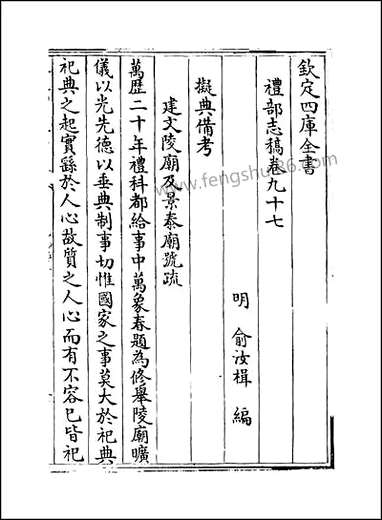 欽定四庫全書
禮部志稿卷九十七
明 俞汝楫 編
擬典備考
建文陵廟及景泰廟號疏
萬歷二十年禮科都給事中萬象春題為修舉陵廟曠
儀以光先德以垂典制事切惟國家之事莫大於祀典
祀典之起實繇於人心故質之人心而有不容已皆祀
www.fengshui86.com